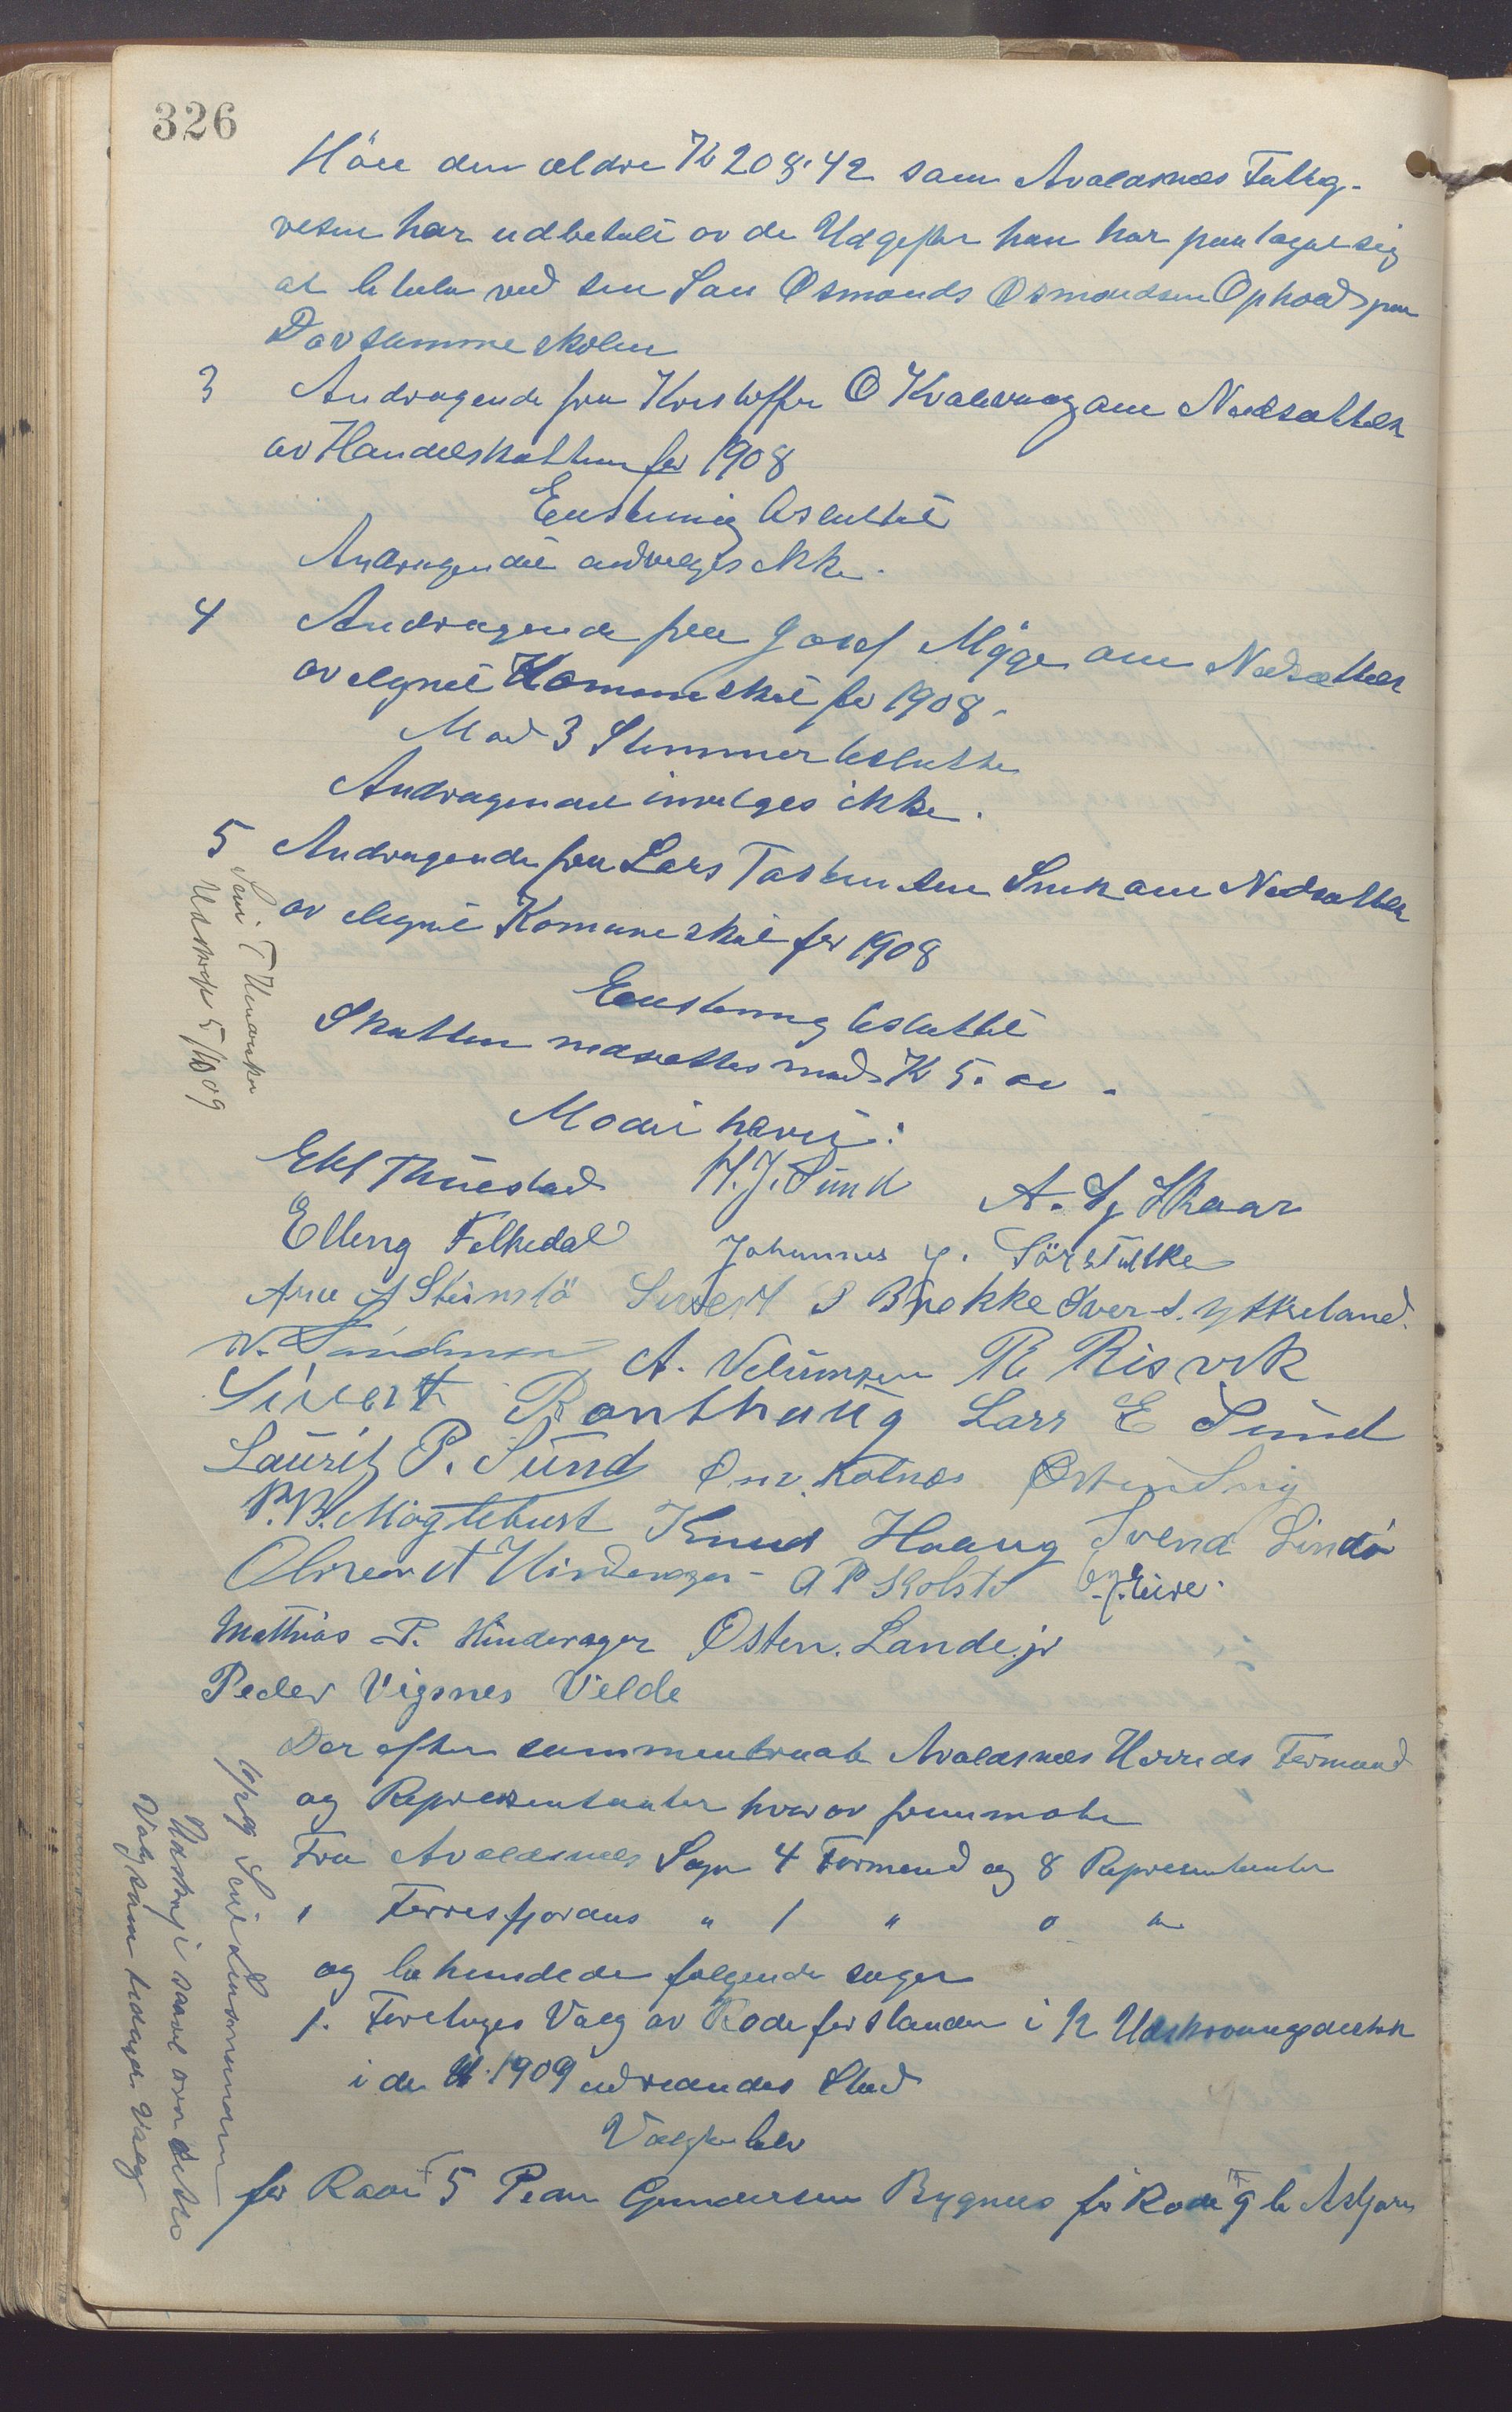 326
den ældre Kr 208.42 som Avaldsnes Fattig-
vesen har udbetalt av de Udgifter han har paataget sig
at betale ved sin Søn Osmonds Osmondsen Ophold paa
Døvstumme skolen
3 Andragende fra Kristoffer O Kvalevaag om Nedsættelse
av Handelskatten for 1908
Enstemig besluttet
Andragendet indvilges ikke.
4 Andragende fra Josef Mygge om Nedsættelse
av lignet Komuneskat for 1908.
Mod 3 Stemmer besluttet
Andragendet invilges ikke.
5 Andragende fra Lars Torstensen om Nedsættelse
av lignet Komuneskat for 1908
Enstemig besluttet
Skatten nedsættes med Kr 5. 00.
Mødet hævet:
Thuestad H. J. Sund A. Skaar
Elling Felkedal Johannes Sørstokke
Arne Steinslø Sivert S Brekke Iver S. Ytreland.
N. Sandmæn A. Velumsen R Risvik
Sivert Ranthaug Lars E Sund
Laurits P. Sund Kolnes Østen
P. B. Mogtebust Knud Haaug Svend Lindø
Hindervager A P Kolstø
Mathias P. Hindervager Østen. Lande. jr
Peder Vigsnes Velde
Der efter sammentraadte Avaldsnes Herreds Formænd
og Repræsentanter hvorav fremmøtte
Fra Avaldsnes Sogn 4 Formænd og 8 Representanter
" Førresfjordens " 1 " 0 "
og behandlede følgende sager
1. Foretages Valg av Rodeforstander i K Udskrivningsdistrikt
i de U. 1909 udtrædendes Sted
Valgte blev
for Rode 5 Peder Gundersen Bygnes for Rode 9
Sent T
Udskrift 5/10 09
Sent Lensmanden
Udskrift
Valg